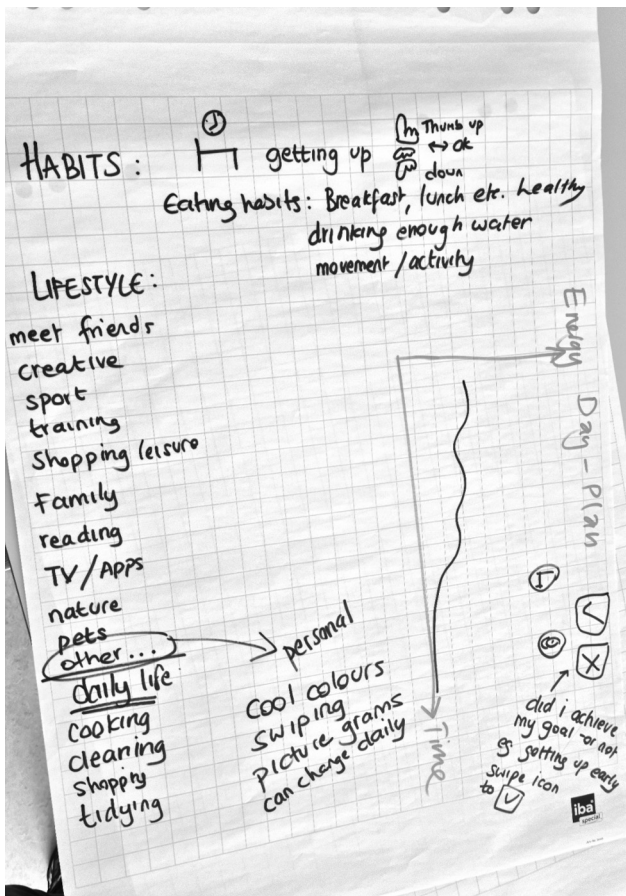 HABITS: getting up Thumb up
↔ ok
down
Eating habits: Breakfast, lunch etc. healthy
drinking enough water
movement / activity
LIFESTYLE:
meet friends
creative
sport
training
Shopping leisure
Family
reading
TV / Apps
nature
pets
other...
daily life
cooking
cleaning
shopping
tidying
personal
Cool colours
swiping
picture grams
can change daily
Energy
Day - Plan
Time
did i achieve
my goal or not
eg getting up early
swipe icon
to
iba
special